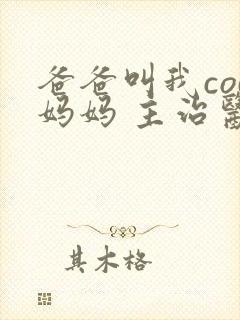 爸爸叫我co
妈妈 主治
其木格